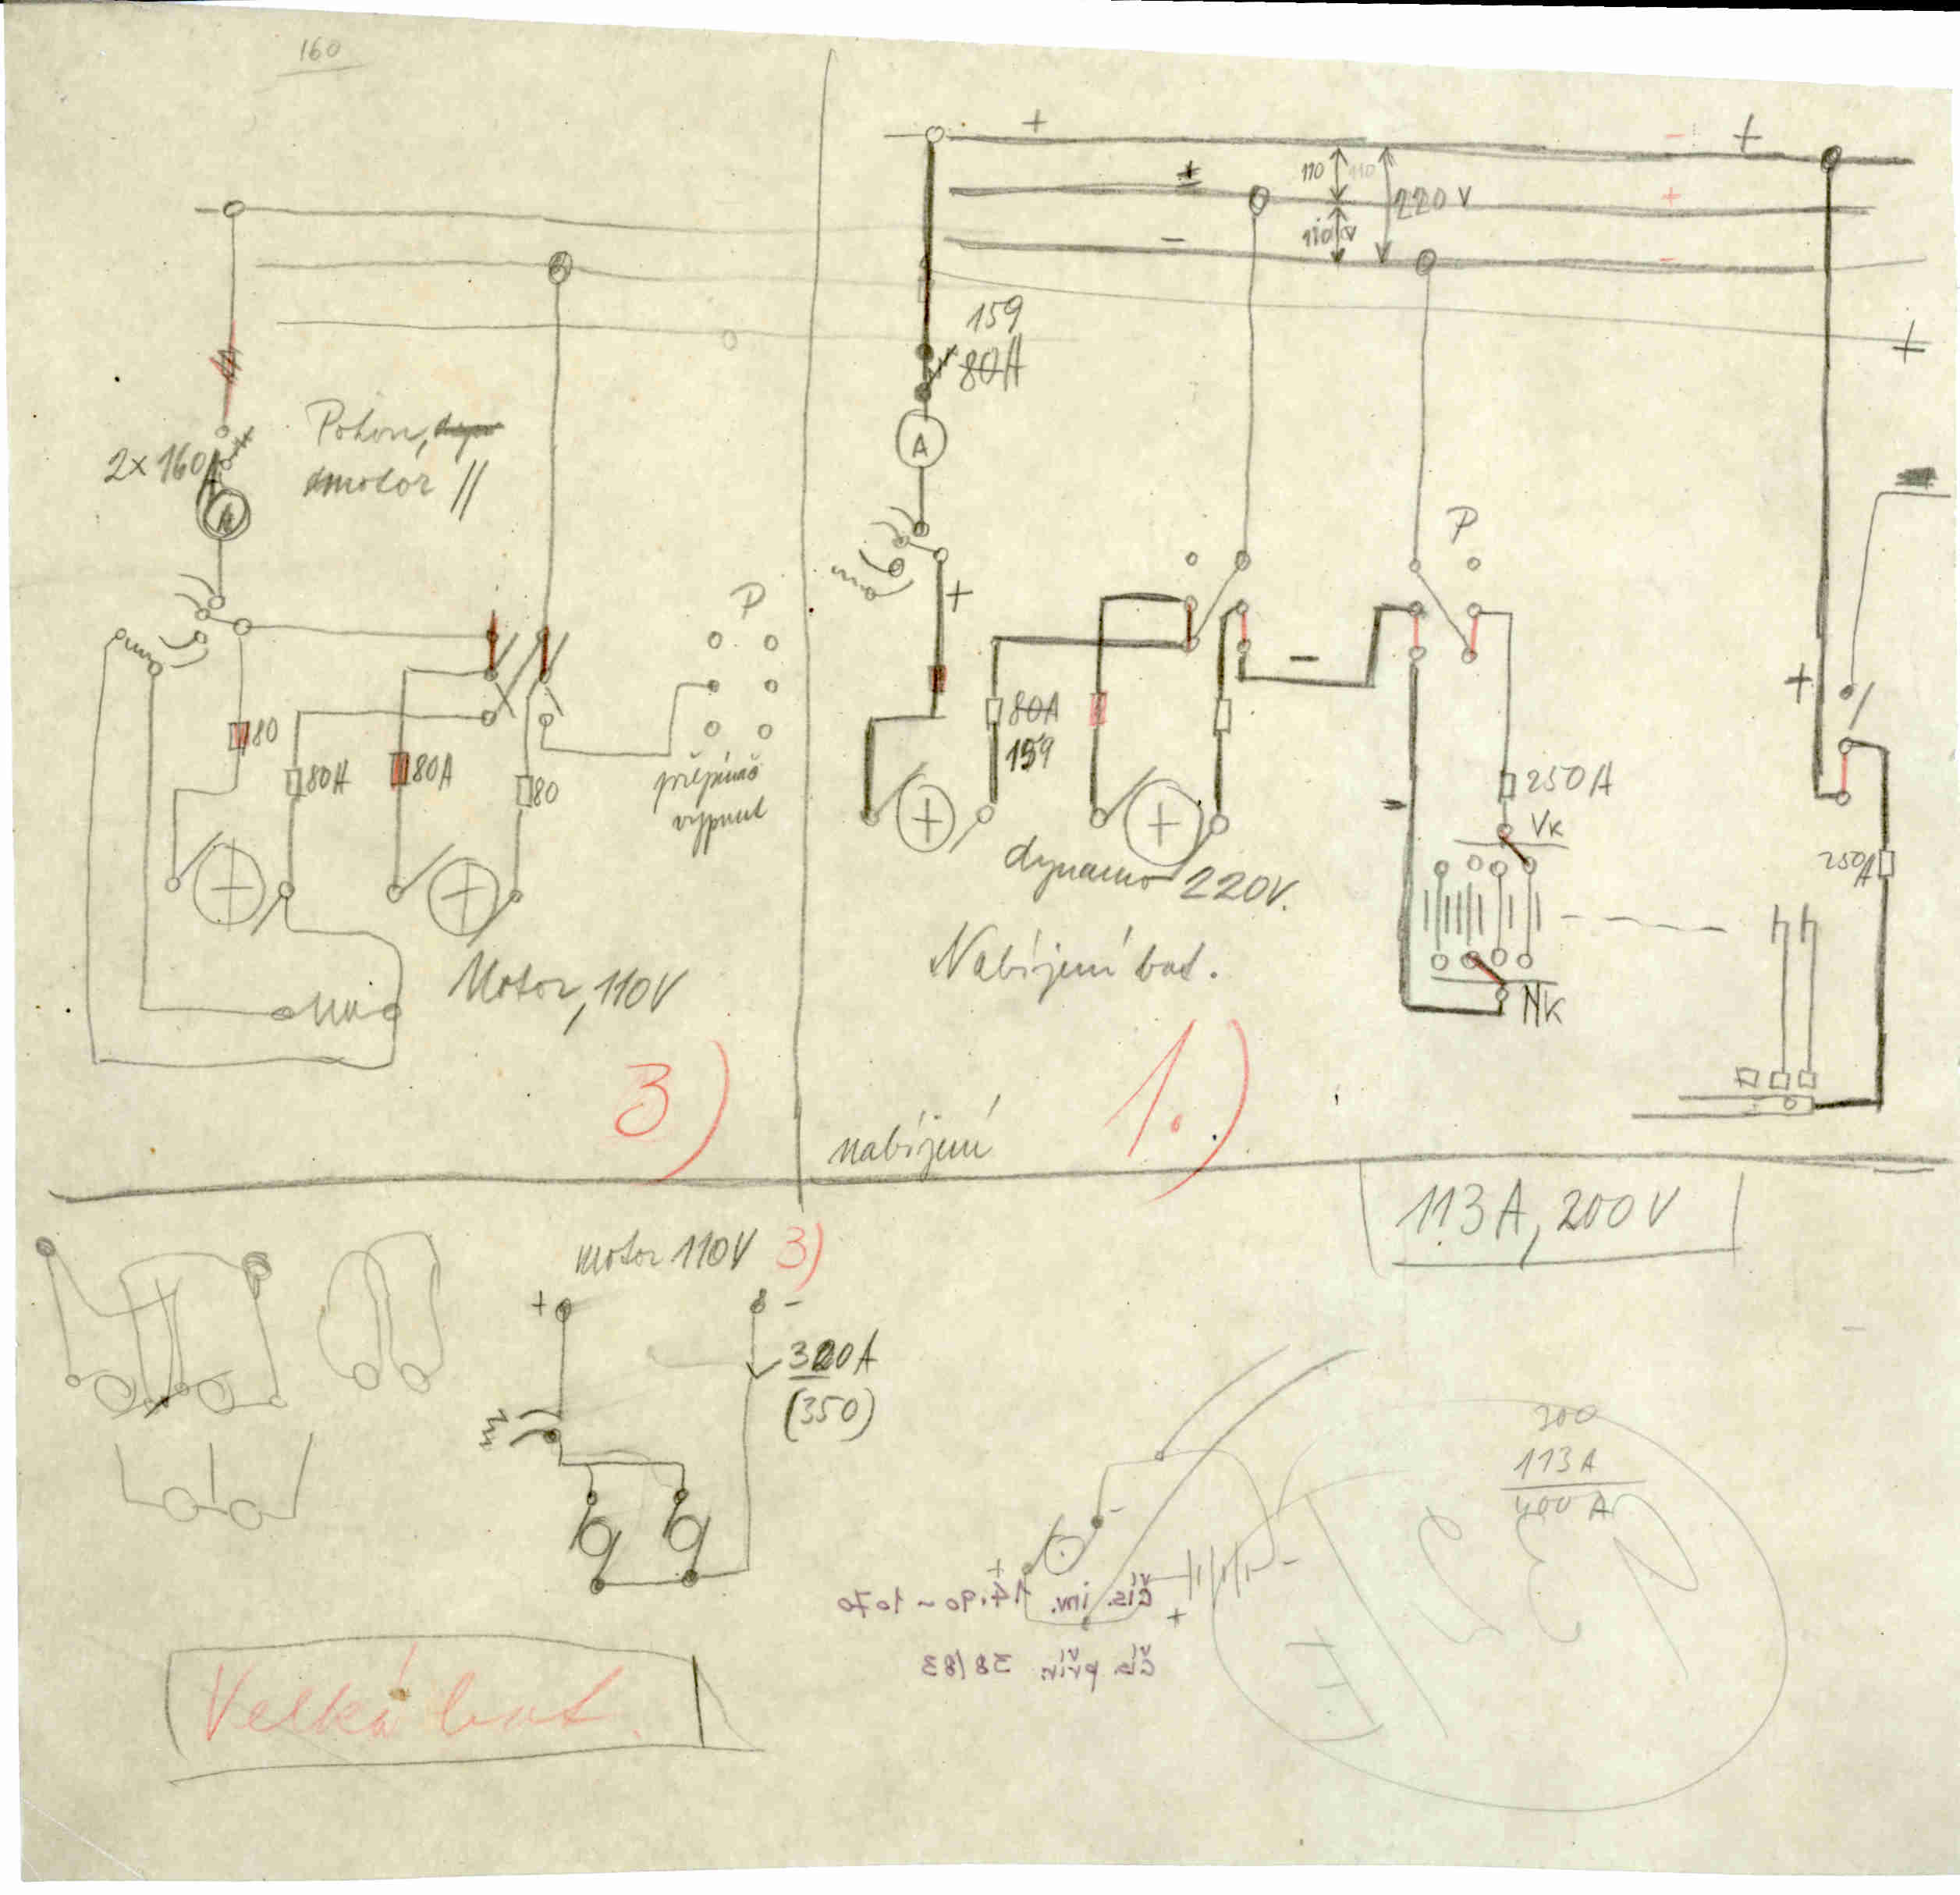 160
Pohon,
motor //
2x160A
P
80
80A
80A
80
přepínač
vypnut
Motor, 110V
3)
+
±
-
110
110
110V
220V
- +
+
-
+
159
80A
A
+
P
-
+
80A
159
dynamo 220V.
Nabíjení bat.
250A
Vk
Nk
250A
nabíjení
1.)
113A, 200V
motor 110V 3)
+ -
320A
(350)
300
113A
400A
-
+
-
+
Čís. inv. 14.90-1070
Čís přír. 38/83
Velká bat.